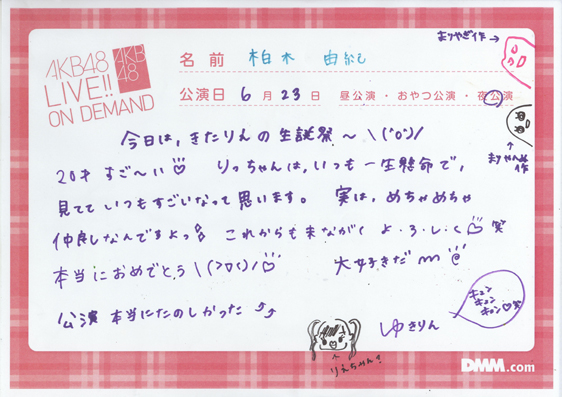 まりやぎ作→
AKB48
LIVE!!
ON DEMAND
AKB
48
名前 柏木 由紀
公演日 6月23日 昼公演・おやつ公演・夜公演
今日は、きたりんの生誕祭～\(^o^)/
20才すご～い♡ りっちゃんは、いつも一生懸命で、
見てていつもすごいなって思います。 実は、めちゃめちゃ
仲良しなんですよっ これからも末ながく よ・ろ・し・く♡笑
本当におめでとう\(>▽<)/♡ 大好きだm
公演 本当にたのしかった
ゆきりん
キュン
キュン
キュン♡笑
りえちゃん?
DMM.com